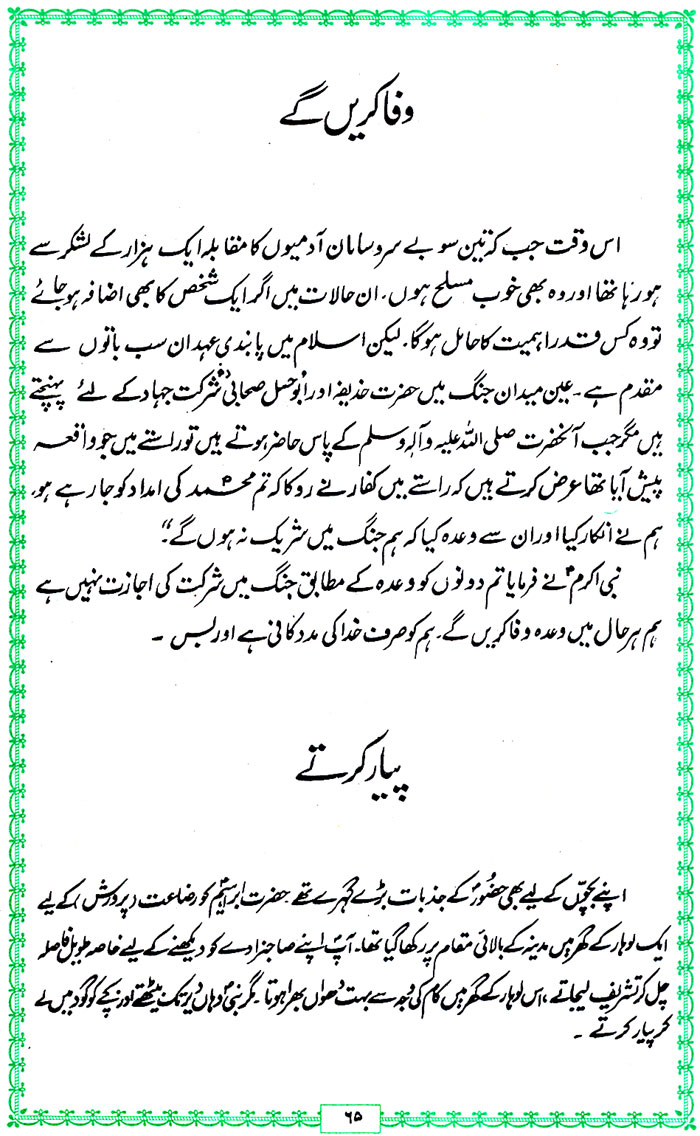 وفا کریں گے
اس وقت جب کہ تین سو بے سروسامان آدمیوں کا مقابلہ ایک ہزار کے لشکر سے
ہو رہا تھا اور وہ بھی خوب مسلح ہوں۔ ان حالات میں اگر ایک شخص کا بھی اضافہ ہو جائے
تو وہ کس قدر اہمیت کا حامل ہوگا۔ لیکن اسلام میں پابندی عہد ان سب باتوں سے
مقدم ہے۔ عین میدان جنگ میں حضرت حذیفہ اور ابو حسل صحابیؓ شرکت جہاد کے لئے پہنچتے
ہیں مگر جب آنحضرت صلی اللہ علیہ وآلہ وسلم کے پاس حاضر ہوتے ہیں تو راستے میں جو واقعہ
پیش آیا تھا عرض کرتے ہیں کہ راستے میں کفار نے روکا کہ تم محمدؐ کی امداد کو جا رہے ہو۔
ہم نے انکار کیا اور ان سے وعدہ کیا کہ ہم جنگ میں شریک نہ ہوں گے"
نبی اکرمؐ نے فرمایا تم دونوں کو وعدہ کے مطابق جنگ میں شرکت کی اجازت نہیں ہے
ہم ہر حال میں وعدہ وفا کریں گے۔ ہم کو صرف خدا کی مدد کافی ہے اور بس ۔
پیار کرتے
اپنے بچوں کے لیے بھی حضورؐ کے جذبات بڑے گہرے تھے حضرت ابراہیمؓ کو رضاعت (پرورش) کے لیے
ایک لوہار کے گھر میں مدینہ کے بالائی مقام پر رکھا گیا تھا۔ آپؐ اپنے صاحبزادے کو دیکھنے کے لیے خاصہ طویل فاصلہ
چل کر تشریف لیجاتے، اس لوہار کے گھر میں کام کی وجہ سے بہت دھواں بھرا ہوتا۔ مگر نبیؐ وہاں دیر تک بیٹھتے اور بچے کو گود میں لے
کر پیار کرتے ۔
۶۵